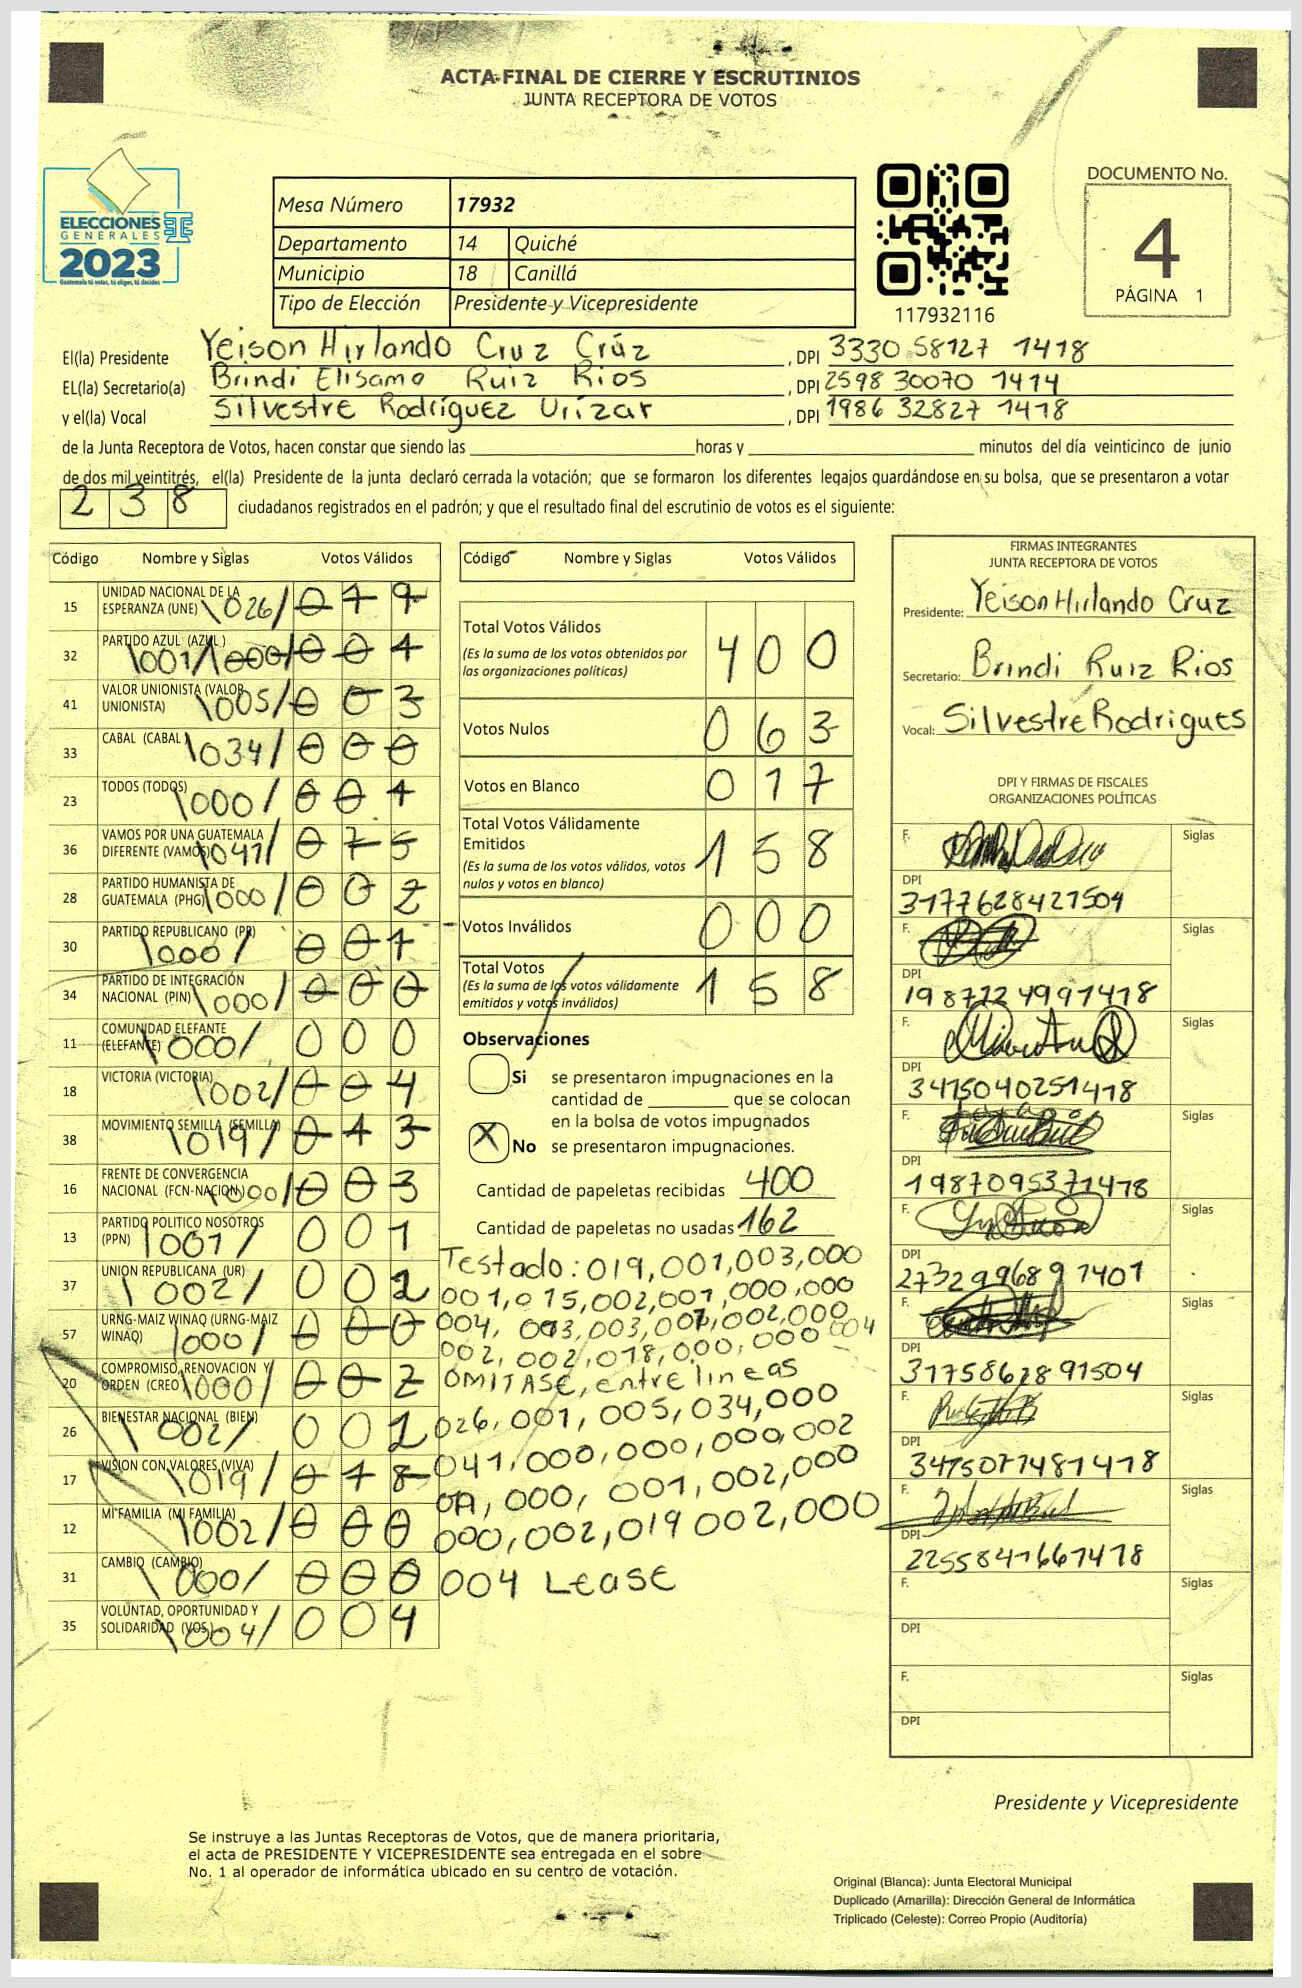 ACTA FINAL DE CIERRE Y ESCRUTINIOS
JUNTA RECEPTORA DE VOTOS
ELECCIONES
GENERALES
2023
Guatemala tú votas, tú eliges, tú decides
Mesa Número 17932
Departamento 14 Quiché
Municipio 18 Canillá
Tipo de Elección Presidente y Vicepresidente
117932116
DOCUMENTO No.
4
PÁGINA 1
El(la) Presidente Yeison Hirlando Cruz Crúz , DPI 3330 58127 1418
EL(la) Secretario(a) Brindi Elisama Ruiz Rios , DPI 2598 30070 1414
y el(la) Vocal Silvestre Rodríguez Urízar , DPI 1986 32827 1418
de la Junta Receptora de Votos, hacen constar que siendo las horas y minutos del día veinticinco de junio
de dos mil veintitrés, el(la) Presidente de la junta declaró cerrada la votación; que se formaron los diferentes legajos guardándose en su bolsa, que se presentaron a votar
238 ciudadanos registrados en el padrón; y que el resultado final del escrutinio de votos es el siguiente:
Código Nombre y Siglas Votos Válidos
15 UNIDAD NACIONAL DE LA ESPERANZA (UNE) \026/ 0 1 9
32 PARTIDO AZUL (AZUL) \001/ \000/ 0 0 1
41 VALOR UNIONISTA (VALOR UNIONISTA) \005/ 0 0 3
33 CABAL (CABAL \034/ 0 0 0
23 TODOS (TODOS) \000/ 0 0 1
36 VAMOS POR UNA GUATEMALA DIFERENTE (VAMOS) \041/ 0 7 5
28 PARTIDO HUMANISTA DE GUATEMALA (PHG) \000/ 0 0 2
30 PARTIDO REPUBLICANO (PR) \000/ 0 0 1
34 PARTIDO DE INTEGRACIÓN NACIONAL (PIN) \000/ 0 0 0
11 COMUNIDAD ELEFANTE (ELEFANTE) \000/ 0 0 0
18 VICTORIA (VICTORIA) \002/ 0 0 4
38 MOVIMIENTO SEMILLA (SEMILLA) \019/ 0 1 3
16 FRENTE DE CONVERGENCIA NACIONAL (FCN-NACION) \000/ 0 0 3
13 PARTIDO POLITICO NOSOTROS (PPN) \001/ 0 0 1
37 UNION REPUBLICANA (UR) \002/ 0 0 2
57 URNG-MAIZ WINAQ (URNG-MAIZ WINAQ) \000/ 0 0 0
20 COMPROMISO, RENOVACION Y ORDEN (CREO \000/ 0 0 2
26 BIENESTAR NACIONAL (BIEN) \002/ 0 0 2
17 VISION CON VALORES (VIVA) \019/ 0 1 8
12 MI FAMILIA (MI FAMILIA) \002/ 0 0 0
31 CAMBIO (CAMBIO) \000/ 0 0 0
35 VOLUNTAD, OPORTUNIDAD Y SOLIDARIDAD (VOS) \004/ 0 0 4
Código Nombre y Siglas Votos Válidos
Total Votos Válidos 4 0 0
(Es la suma de los votos obtenidos por
las organizaciones políticas)
Votos Nulos 0 6 3
Votos en Blanco 0 17
Total Votos Válidamente
Emitidos 1 5 8
(Es la suma de los votos válidos, votos
nulos y votos en blanco)
Votos Inválidos 0 0 0
Total Votos 1 5 8
(Es la suma de los votos válidamente
emitidos y votos inválidos)
Observaciones
Si se presentaron impugnaciones en la
cantidad de que se colocan
en la bolsa de votos impugnados
X No se presentaron impugnaciones.
Cantidad de papeletas recibidas 400
Cantidad de papeletas no usadas 162
Testado: 019,001,003,000
001,015,002,001,000,000
004, 013,003,001,002,000
002, 002,018,000,000 004
OMITASE, entre lineas
026,001,005,034,000
041,000,000,000,002
000, 001,002,000
000,002,019 002,000
004 Lease
FIRMAS INTEGRANTES
JUNTA RECEPTORA DE VOTOS
Presidente: Yeison Hirlando Cruz
Secretario: Brindi Ruiz Rios
Vocal: Silvestre Rodrigues
DPI Y FIRMAS DE FISCALES
ORGANIZACIONES POLÍTICAS
F. Siglas
DPI
3177628421504
F. Siglas
DPI
1987224991418
F. Siglas
DPI
3415040251418
F. Siglas
DPI
1987095371418
F. Siglas
DPI
2732996891401
F. Siglas
DPI
3175862891504
F. Siglas
DPI
3415077481418
F. Siglas
DPI
2255841661418
F. Siglas
DPI
F. Siglas
DPI
Presidente y Vicepresidente
Se instruye a las Juntas Receptoras de Votos, que de manera prioritaria,
el acta de PRESIDENTE Y VICEPRESIDENTE sea entregada en el sobre
No. 1 al operador de informática ubicado en su centro de votación.
Original (Blanca): Junta Electoral Municipal
Duplicado (Amarilla): Dirección General de Informática
Triplicado (Celeste): Correo Propio (Auditoría)